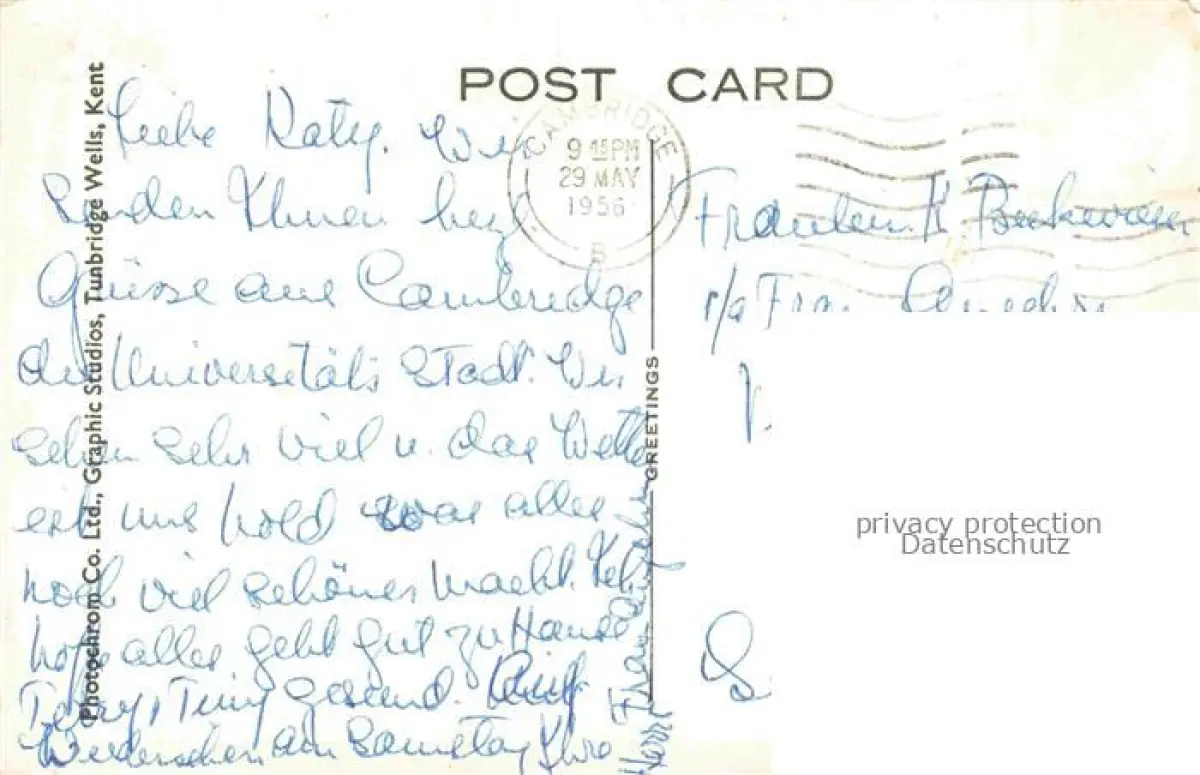 POST CARD
Photochrom Co. Ltd., Graphic Studios, Tunbridge Wells, Kent
CAMBRIDGE
9 15 PM
29 MAY
1956
B
GREETINGS
Liebe Katy. Wir
senden Ihnen herz
Grüsse aus Cambridge
der Universitäts Stadt. Wir
sehen sehr viel u. das Wetter
ist uns hold was alles
noch viel schöner macht. Ich
hoffe alles geht gut zu Hause
Terry, Timy gesund. Auf
Wiedersehen am Samstag Ihre
Fräulein K.
c/o Frau
privacy protection
Datenschutz